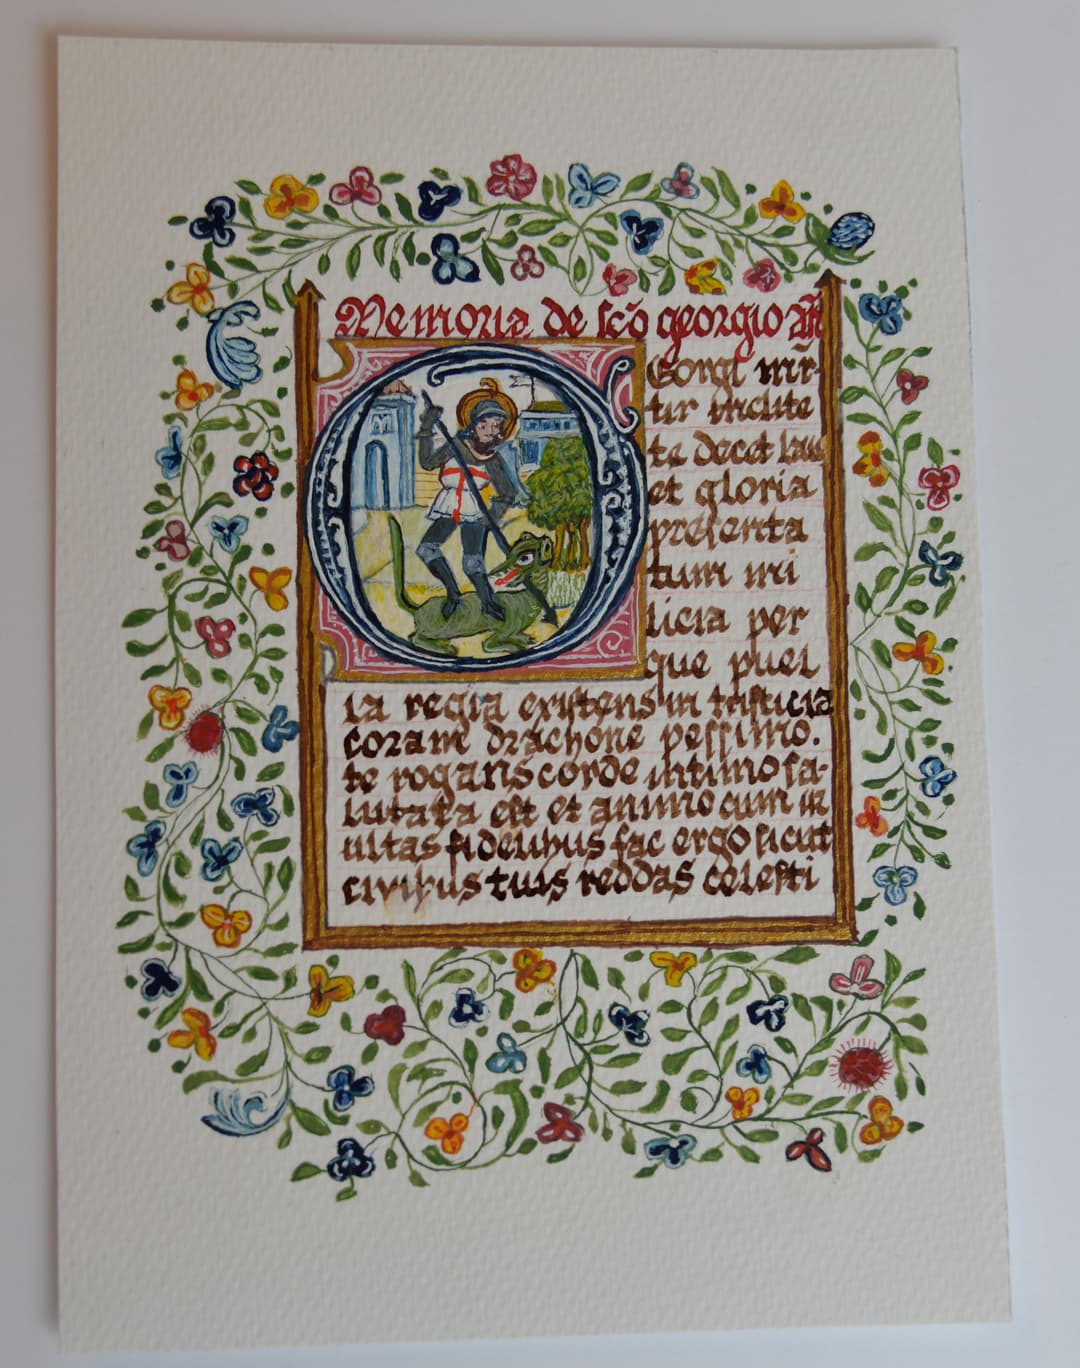 Memoria de sc̄o georgio an̄
Georgi mr̄-
tir inclite
te decet laus
et gloria
presenta
tum mi
licia per
que puel
la regia existens in tristicia
coram drachone pessimo.
te rogans corde intimo sa-
lutata est et animo cum in
uitas fidelibus fac ergo sicut
civibus tuis reddas celesti